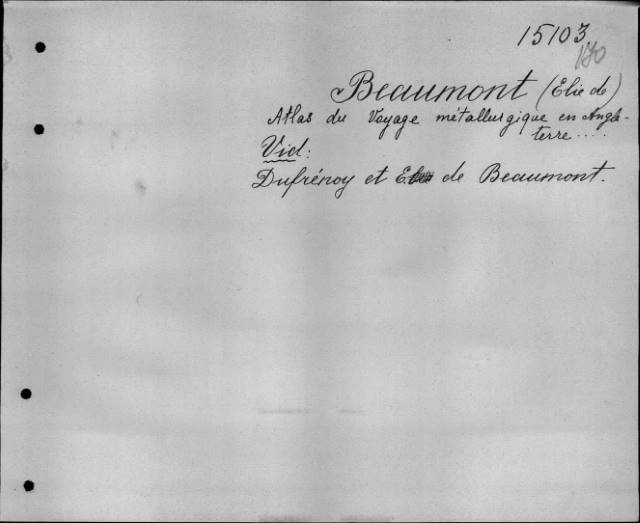 15103
170
Beaumont (Elie de)
Atlas du Voyage métallurgique en Angle-
terre....
Vid:
Dufrénoy et Elie de Beaumont.